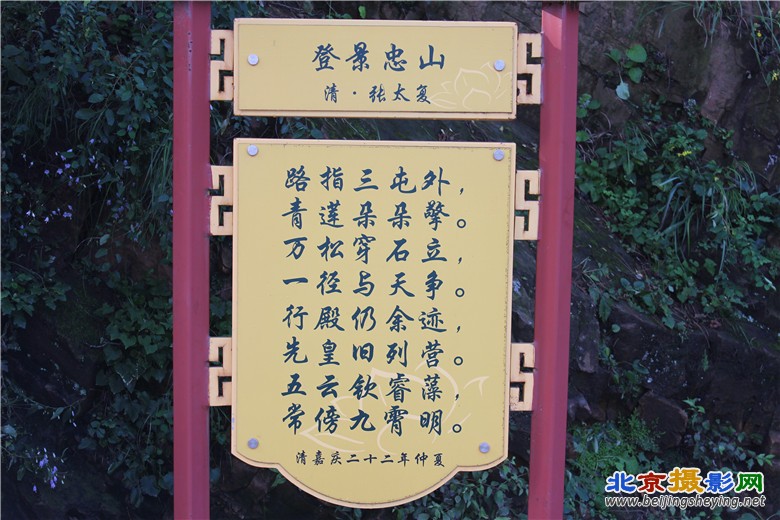 登景忠山
清·张太复
路指三屯外，
青莲朵朵擎。
万松穿石立，
一径与天争。
行殿仍余迹，
先皇旧列营。
五云钦睿藻，
常傍九霄明。
清嘉庆二十二年仲夏
北京摄影网
www.beijingsheying.net